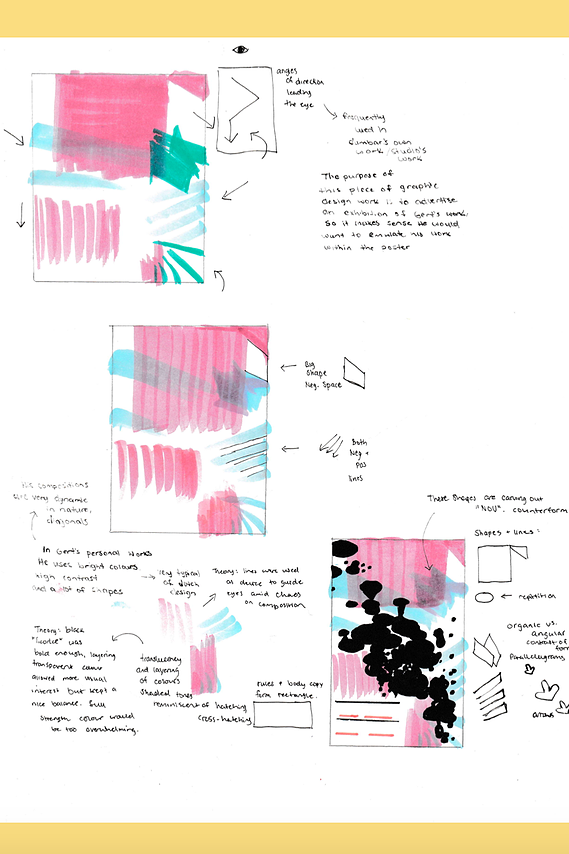 anges
of direction
leading
the eye
Frequently
used in
Dumbar's own
work/studio's
work
The purpose of
this piece of graphic
design work is to advertise
an exhibition of Gert's work,
so it makes sense he would
want to emulate his work
within the poster
Big
Shape
Neg. Space
Both
Neg +
Pos
lines
His compositions
are very dynamic
in nature,
diagonals
These images are carving out
"NOU". counterform
Shapes + lines:
In Gert's personal works
He uses bright colours.
high contrast
and a lot of shapes
very typical
of dutch
design
Theory: lines were used
as device to guide
eyes amid chaos
on composition
← repetition
organic vs.
angular
contrast of
form
Parallelograms
arrows
Theory: black
was
bold enough, layering
transparent
allowed more visual
interest but kept a
nice balance. full
strength colour would
be too overwhelming.
translucency
and layering
of colours
shaded tones
reminiscent of hatching
cross-hatching
rules + body copy
form rectangle.